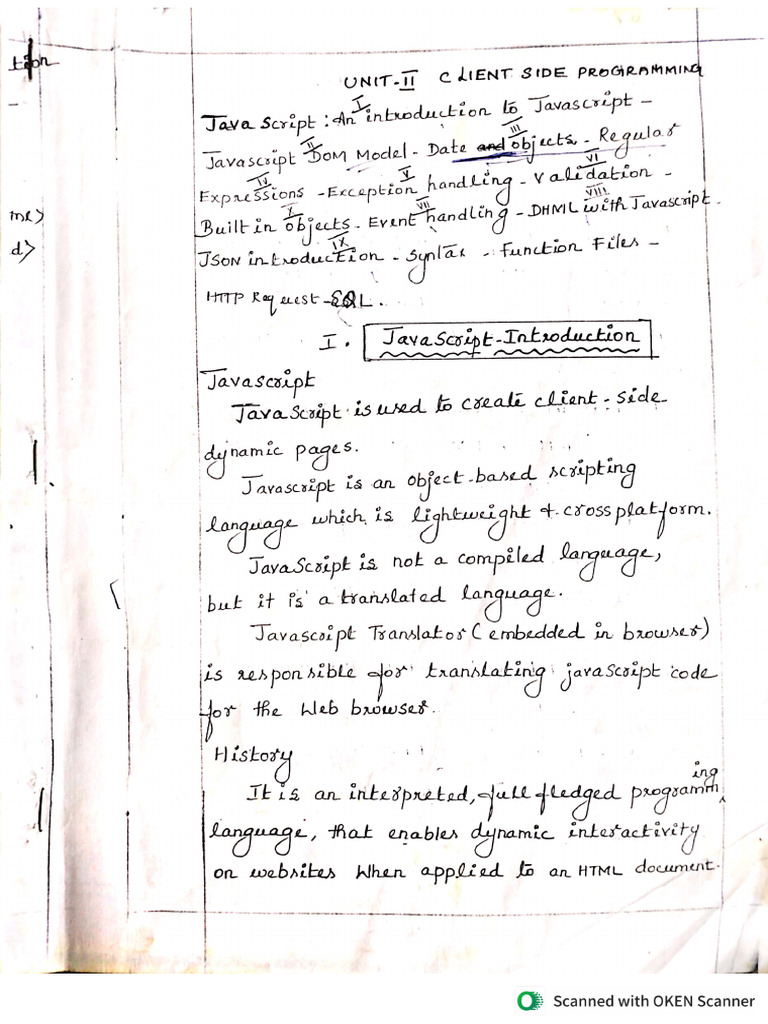 tion
UNIT-II CLIENT SIDE PROGRAMMING
I
Java Script : An introduction to Javascript -
II III
Javascript DOM Model - Date and objects - Regular
IV V VI
Expressions - Exception handling - Validation -
X VII VIII
Built in objects - Event handling - DHML with Javascript -
IX
JSON introduction - Syntax - Function Files -
HTTP Request - SQL.
me>
d>
I. JavaScript-Introduction
Javascript
JavaScript is used to create client-side
dynamic pages.
Javascript is an object-based scripting
language which is lightweight & cross platform.
JavaScript is not a compiled language,
but it is a translated language.
Javascript Translator (embedded in browser)
is responsible for translating javaScript code
for the Web browser.
History
ing
It is an interpreted, full fledged programm
language, that enables dynamic interactivity
on websites When applied to an HTML document.
Scanned with OKEN Scanner